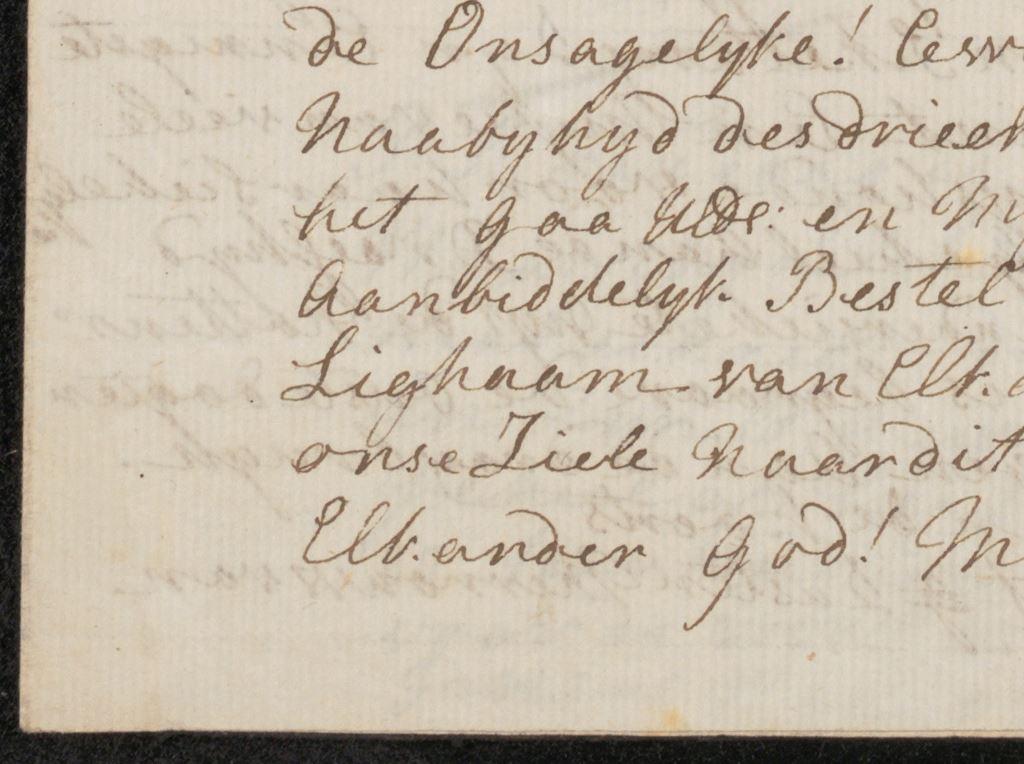 de Onsagelyke! Eeuw
Naabyhyd des drieen
het gaa UEds: en My
Aanbiddelyk Bestel
Lighaam van Elk.
onse Ziele Naar dit
Elkander God! M